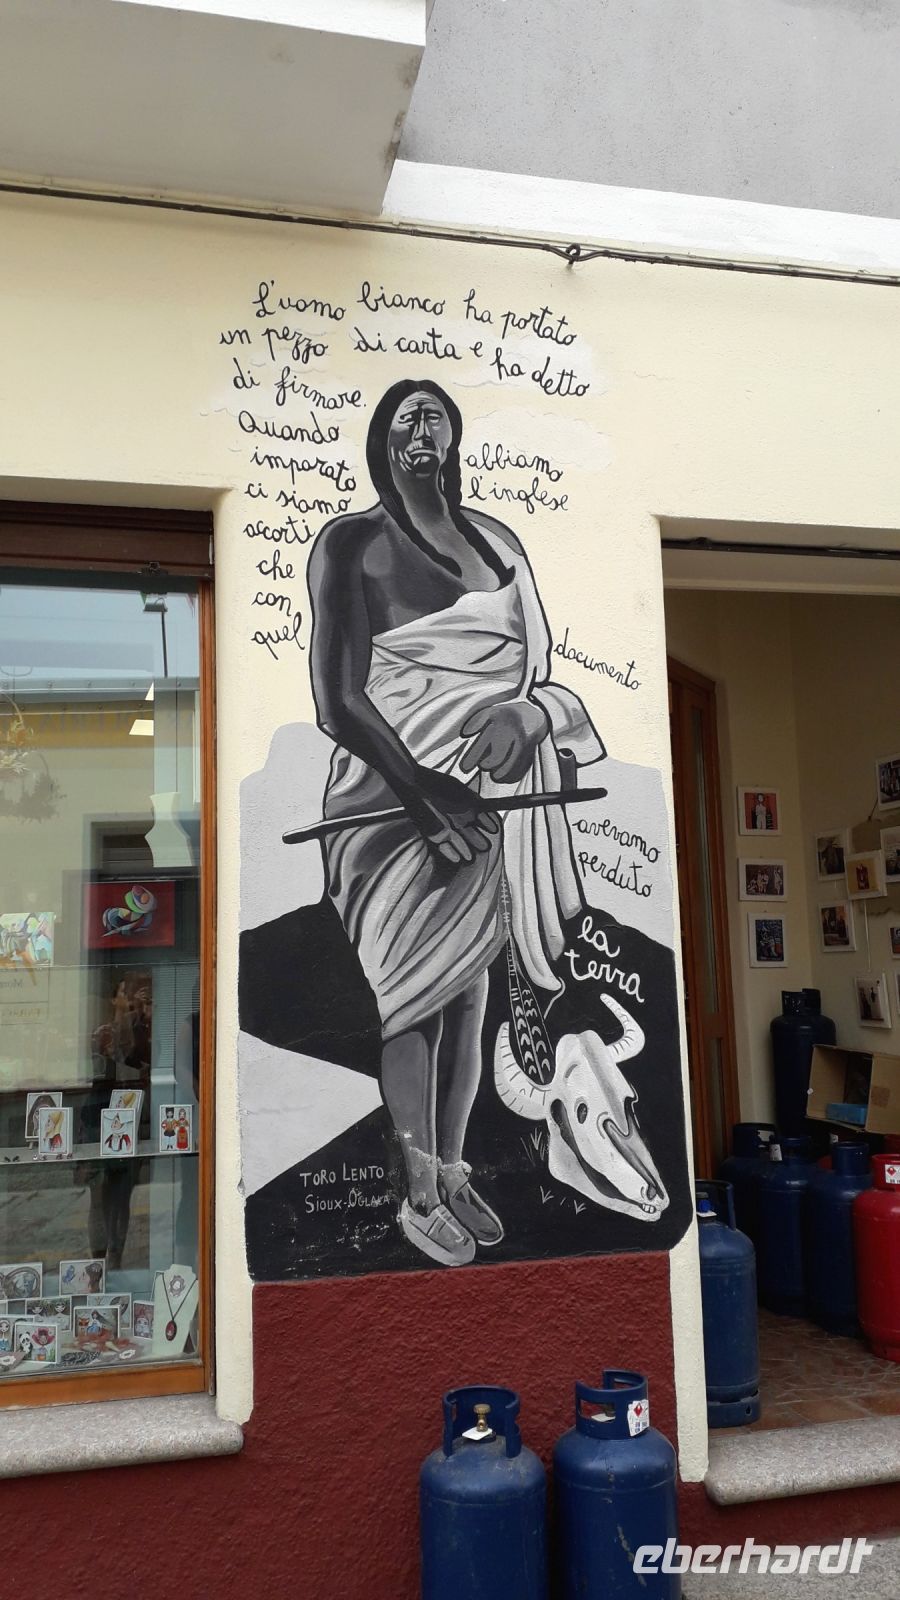 L'uomo bianco ha portato
un pezzo di carta e ha detto
di firmare.
Quando
imparato abbiamo
ci siamo l'inglese
accorti
che
con
quel documento
avevamo
perduto
la
terra
TORO LENTO
SIOUX-OGLALA
eberhardt